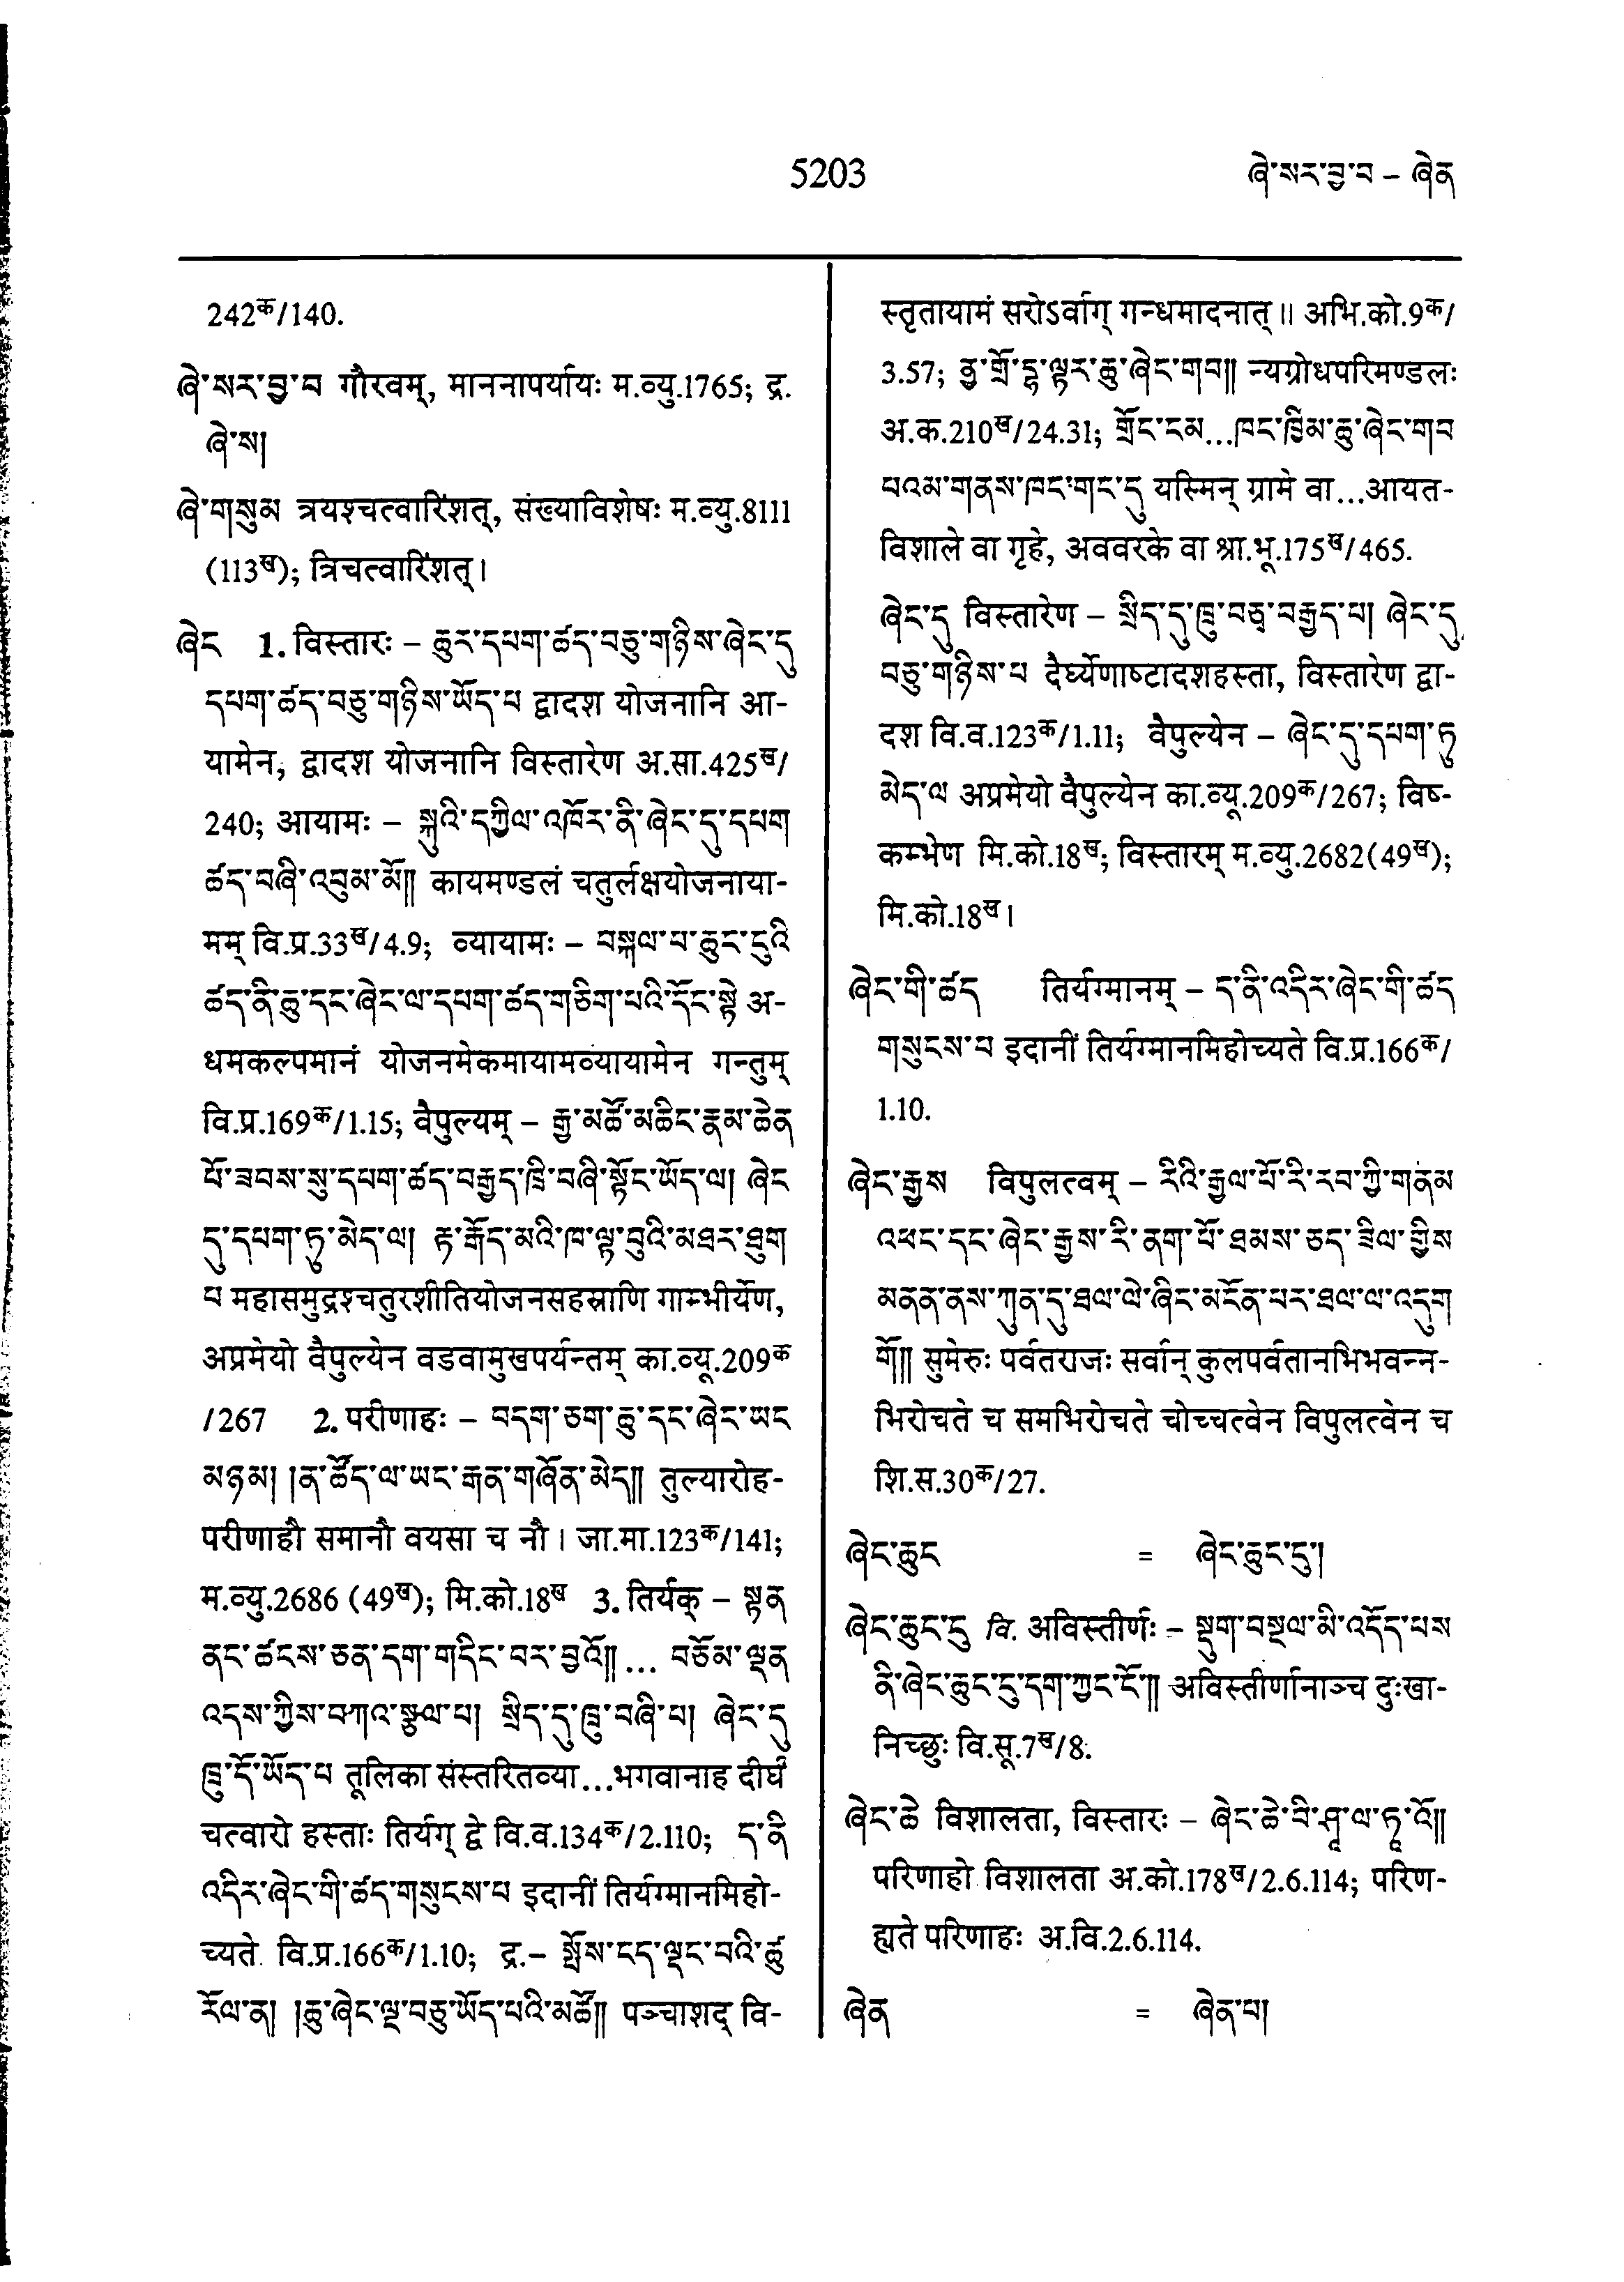 5203
ཞེ་སར་བྱ་བ – ཞེན
242क/140.
ཞེ་སར་བྱ་བ गौरवम्, माननापर्यायः म.व्यु.1765; द्र.
ཞེ་ས།
ཞེ་གསུམ त्रयश्चत्वारिंशत्, संख्याविशेषः म.व्यु.8111
(113ख); त्रिचत्वारिंशत्।
ཞེང 1. विस्तारः – ཆུར་དཔག་ཚད་བཅུ་གཉིས་ཞེང་དུ
དཔག་ཚད་བཅུ་གཉིས་ཡོད་པ द्वादश योजनानि आ-
यामेन, द्वादश योजनानि विस्तारेण अ.सा.425ख/
240; आयामः – སྐུའི་དཀྱིལ་འཁོར་ནི་ཞེང་དུ་དཔག
ཚད་བཞི་འབུམ་མོ།། कायमण्डलं चतुर्लक्षयोजनाया-
मम् वि.प्र.33ख/4.9; व्यायामः – བསྐལ་པ་ཆུང་ངུའི
ཚད་ནི་ཆུ་དང་ཞེང་ལ་དཔག་ཚད་གཅིག་པའི་དོང་སྟེ अ-
धमकल्पमानं योजनमेकमायामव्यायामेन गन्तुम्
वि.प्र.169क/1.15; वैपुल्यम् – རྒྱ་མཚོ་མཆིང་རྣམ་ཆེན
པོ་ཟབས་སུ་དཔག་ཚད་བརྒྱད་ཁྲི་བཞི་སྟོང་ཡོད་ལ། ཞེང
དུ་དཔག་ཏུ་མེད་ལ། རྟ་རྒོད་མའི་ཁ་ལྟ་བུའི་མཐར་ཐུག
པ महासमुद्रश्चतुरशीतियोजनसहस्राणि गाम्भीर्येण,
अप्रमेयो वैपुल्येन वडवामुखपर्यन्तम् का.व्यू.209क
/267 2. परीणाहः – བདག་ཅག་ཆུ་དང་ཞེང་ཡང
མཉམ། །ན་ཚོད་ལ་ཡང་རྒན་གཞོན་མེད།། तुल्यारोह-
परीणाहौ समानौ वयसा च नौ। जा.मा.123क/141;
म.व्यु.2686 (49ख); मि.को.18ख 3. तिर्यक् – སྟན
ནང་ཚངས་ཅན་དག་གདིང་བར་བྱའོ།།... བཅོམ་ལྡན
འདས་ཀྱིས་བཀའ་སྩལ་པ། སྲིད་དུ་ཁྲུ་བཞི་པ། ཞེང་དུ
ཁྲུ་དོ་ཡོད་པ तूलिका संस्तरितव्या...भगवानाह दीर्घ
चत्वारो हस्ताः तिर्यग् द्वे वि.व.134क/2.110; ད་ནི
འདིར་ཞེང་གི་ཚད་གསུངས་པ इदानीं तिर्यग्मानमिहो-
च्यते वि.प्र.166क/1.10; द्र.– སྤོས་ངད་ལྡང་བའི་ཚུ
རོལ་ན། །ཆུ་ཞེང་ལྔ་བཅུ་ཡོད་པའི་མཚོ།། पञ्चाशद् वि-
स्तृतायामं सरोऽर्वाग् गन्धमादनात्॥ अभि.को.9क/
3.57; ནྱ་གྲོ་དྷ་ལྟར་ཆུ་ཞེང་གབ།། न्यग्रोधपरिमण्डलः
अ.क.210ख/24.31; གྲོང་ངམ...ཁང་ཁྱིམ་ཆུ་ཞེང་གབ
པའམ་གནས་ཁང་གང་དུ यस्मिन् ग्रामे वा...आयत-
विशाले वा गृहे, अववरके वा श्रा.भू.175ख/465.
ཞེང་དུ विस्तारेण – སྲིད་དུ་ཁྲུ་བཅྭ་བརྒྱད་པ། ཞེང་དུ
བཅུ་གཉིས་པ दैर्घ्येणाष्टादशहस्ता, विस्तारेण द्वा-
दश वि.व.123क/1.11; वैपुल्येन – ཞེང་དུ་དཔག་ཏུ
མེད་ལ अप्रमेयो वैपुल्येन का.व्यू.209क/267; विष-
कम्भेण मि.को.18ख; विस्तारम् म.व्यु.2682(49ख);
मि.को.18ख।
ཞེང་གི་ཚད तिर्यग्मानम् – ད་ནི་འདིར་ཞེང་གི་ཚད
གསུངས་པ इदानीं तिर्यग्मानमिहोच्यते वि.प्र.166क/
1.10.
ཞེང་རྒྱས विपुलत्वम् – རིའི་རྒྱལ་པོ་རི་རབ་ཀྱི་གནམ
འཕང་དང་ཞེང་རྒྱས་རི་ནག་པོ་ཐམས་ཅད་ཟིལ་གྱིས
མནན་ནས་ཀུན་དུ་ཐལ་ལེ་ཞིང་མངོན་པར་ཐལ་ལ་འདུག
གོ།། सुमेरुः पर्वतराजः सर्वान् कुलपर्वतानभिभवन्न-
भिरोचते च समभिरोचते चोच्चत्वेन विपुलत्वेन च
शि.स.30क/27.
ཞེང་ཆུང = ཞེང་ཆུང་ངུ།
ཞེང་ཆུང་ངུ वि. अविस्तीर्णः – སྡུག་བསྔལ་མི་འདོད་པས
ནི་ཞེང་ཆུང་ངུ་དག་ཀྱང་ངོ་།། अविस्तीर्णानाञ्च दुःखा-
निच्छुः वि.सू.7ख/8.
ཞེང་ཆེ विशालता, विस्तारः – ཞེང་ཆེ་བི་ཤཱ་ལ་ཏཱ་འོ།།
परिणाहो विशालता अ.को.178ख/2.6.114; परिण-
ह्यते परिणाहः अ.वि.2.6.114.
ཞེན = ཞེན་པ།